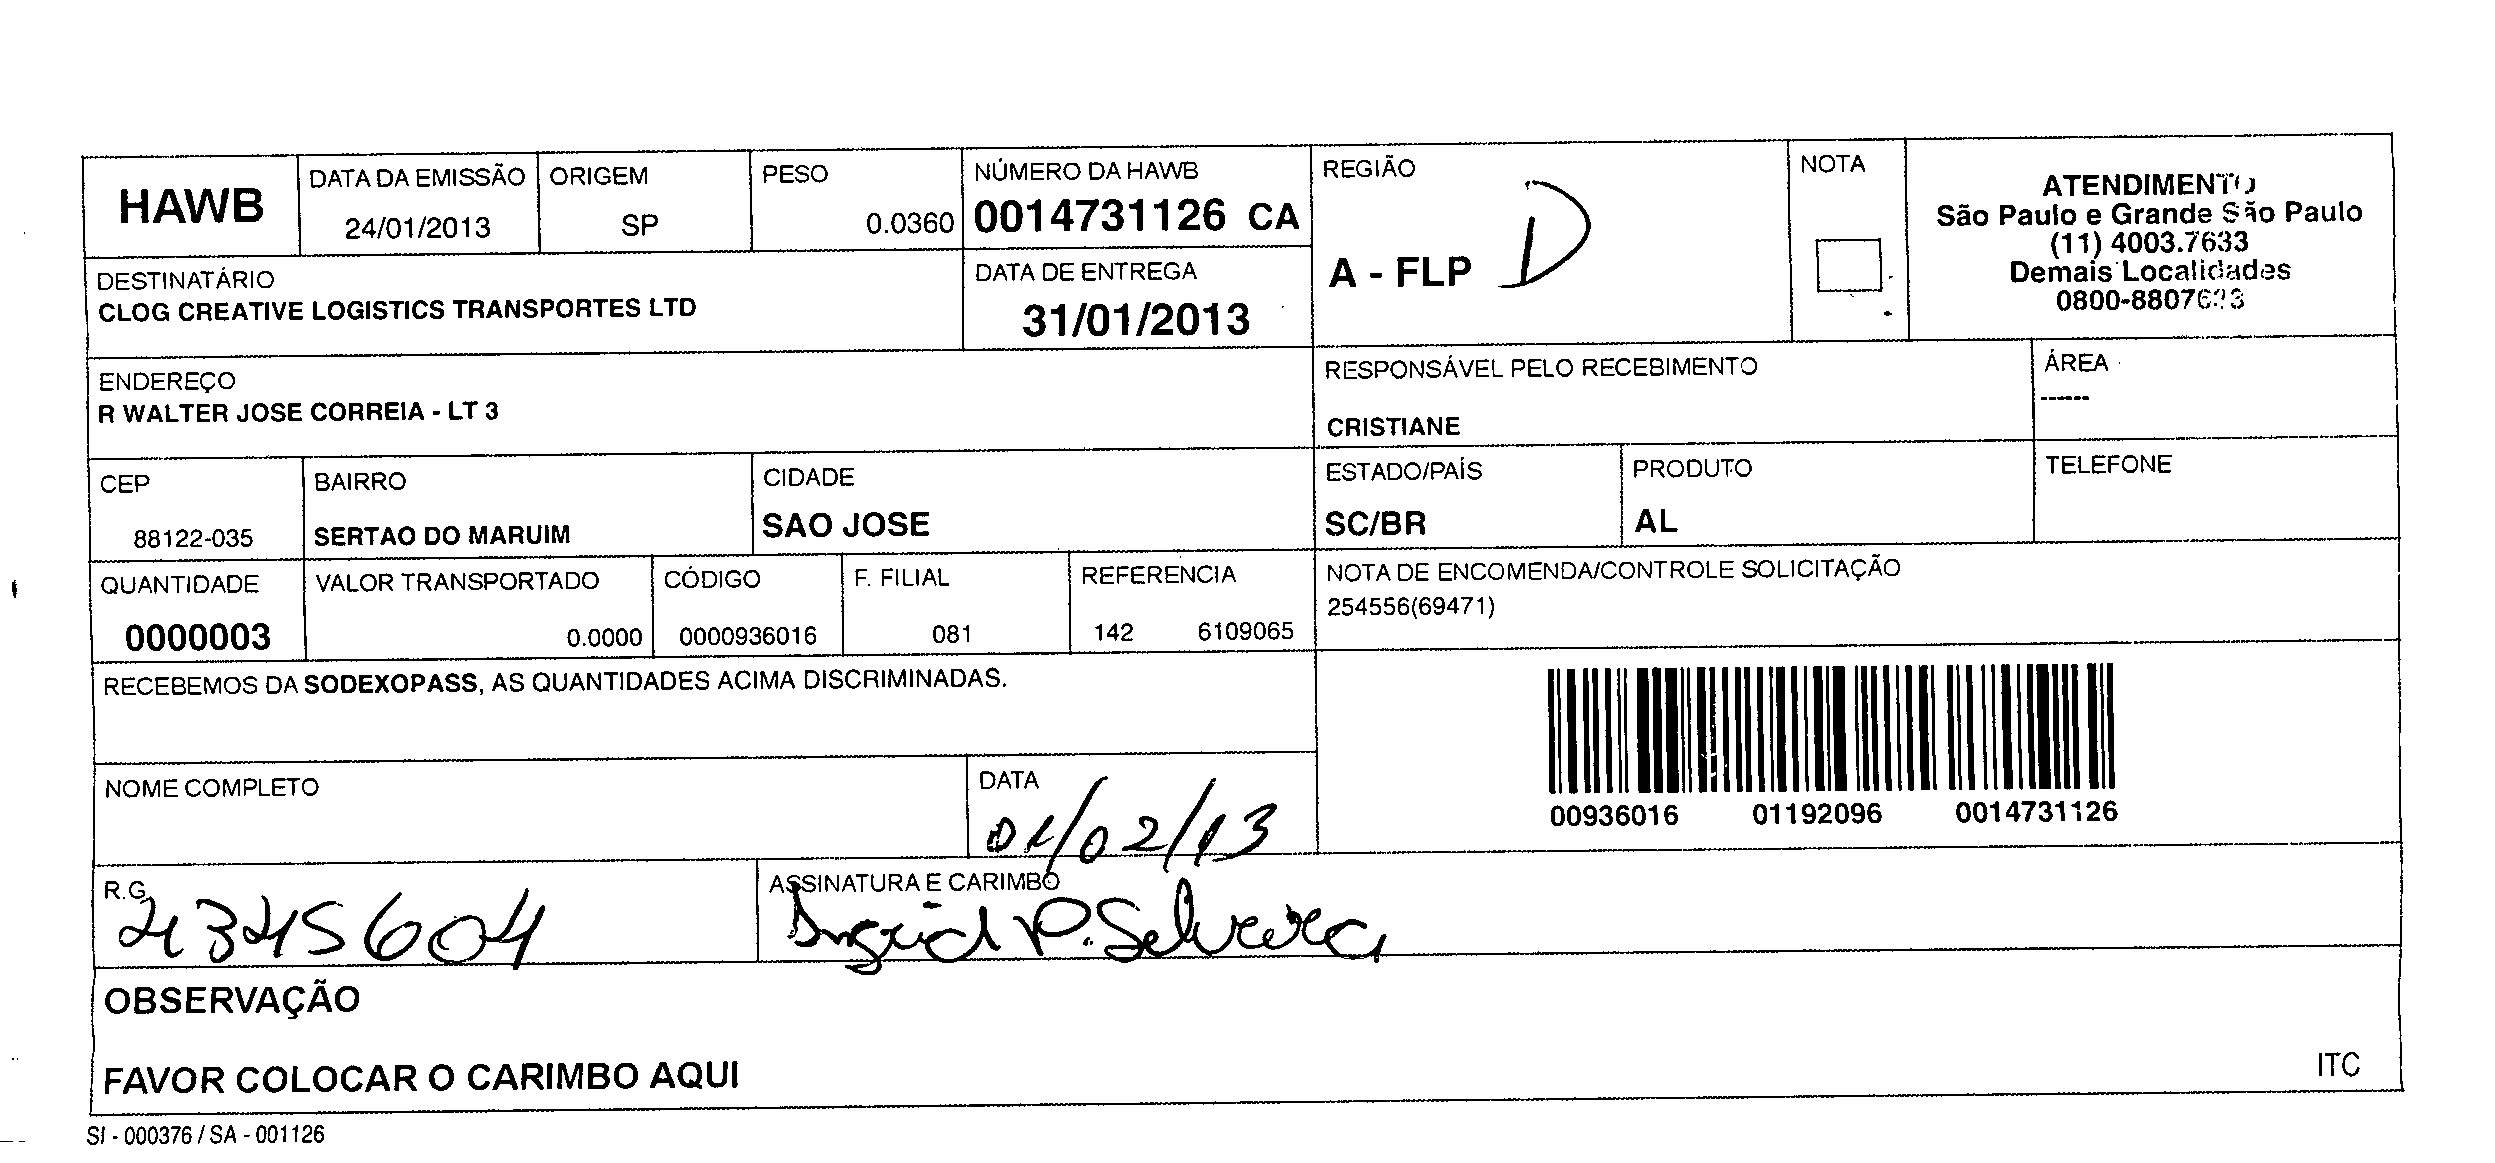 HAWB
DATA DA EMISSÃO
24/01/2013
ORIGEM
SP
PESO
0.0360
NÚMERO DA HAWB
0014731126 CA
REGIÃO
A - FLP D
NOTA
ATENDIMENTO
São Paulo e Grande São Paulo
(11) 4003.7633
Demais Localidades
0800-8807633
DESTINATÁRIO
CLOG CREATIVE LOGISTICS TRANSPORTES LTD
DATA DE ENTREGA
31/01/2013
ENDEREÇO
R WALTER JOSE CORREIA - LT 3
RESPONSÁVEL PELO RECEBIMENTO
CRISTIANE
ÁREA
------
CEP
88122-035
BAIRRO
SERTAO DO MARUIM
CIDADE
SAO JOSE
ESTADO/PAÍS
SC/BR
PRODUTO
AL
TELEFONE
QUANTIDADE
0000003
VALOR TRANSPORTADO
0.0000
CÓDIGO
0000936016
F. FILIAL
081
REFERENCIA
142 6109065
NOTA DE ENCOMENDA/CONTROLE SOLICITAÇÃO
254556(69471)
RECEBEMOS DA SODEXOPASS, AS QUANTIDADES ACIMA DISCRIMINADAS.
00936016 01192096 0014731126
NOME COMPLETO
DATA
01/02/13
R.G.
4345604
ASSINATURA E CARIMBO
Ingrid P. Silveira
OBSERVAÇÃO
FAVOR COLOCAR O CARIMBO AQUI
ITC
SI - 000376 / SA - 001126